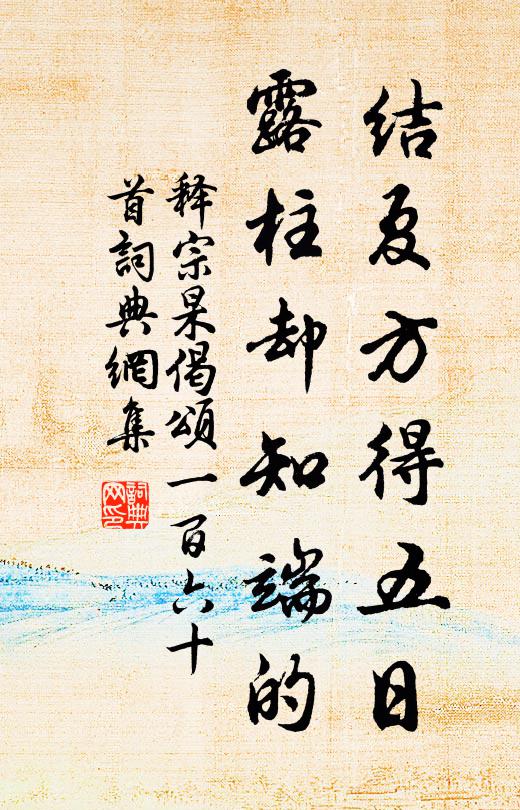 结夏方得五日
露柱却知端的
释宗杲偈頌一百六十
首詞典網集
詞典
网印